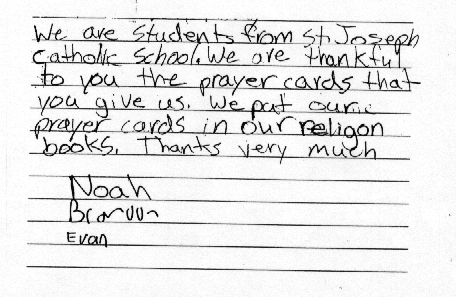 We are Students from St. Joseph
Catholic School. We are trankful
to you the prayer cards that
you give us. We put our
prayer cards in our religon
books. Thanks very much
Noah
Brandon
Evan